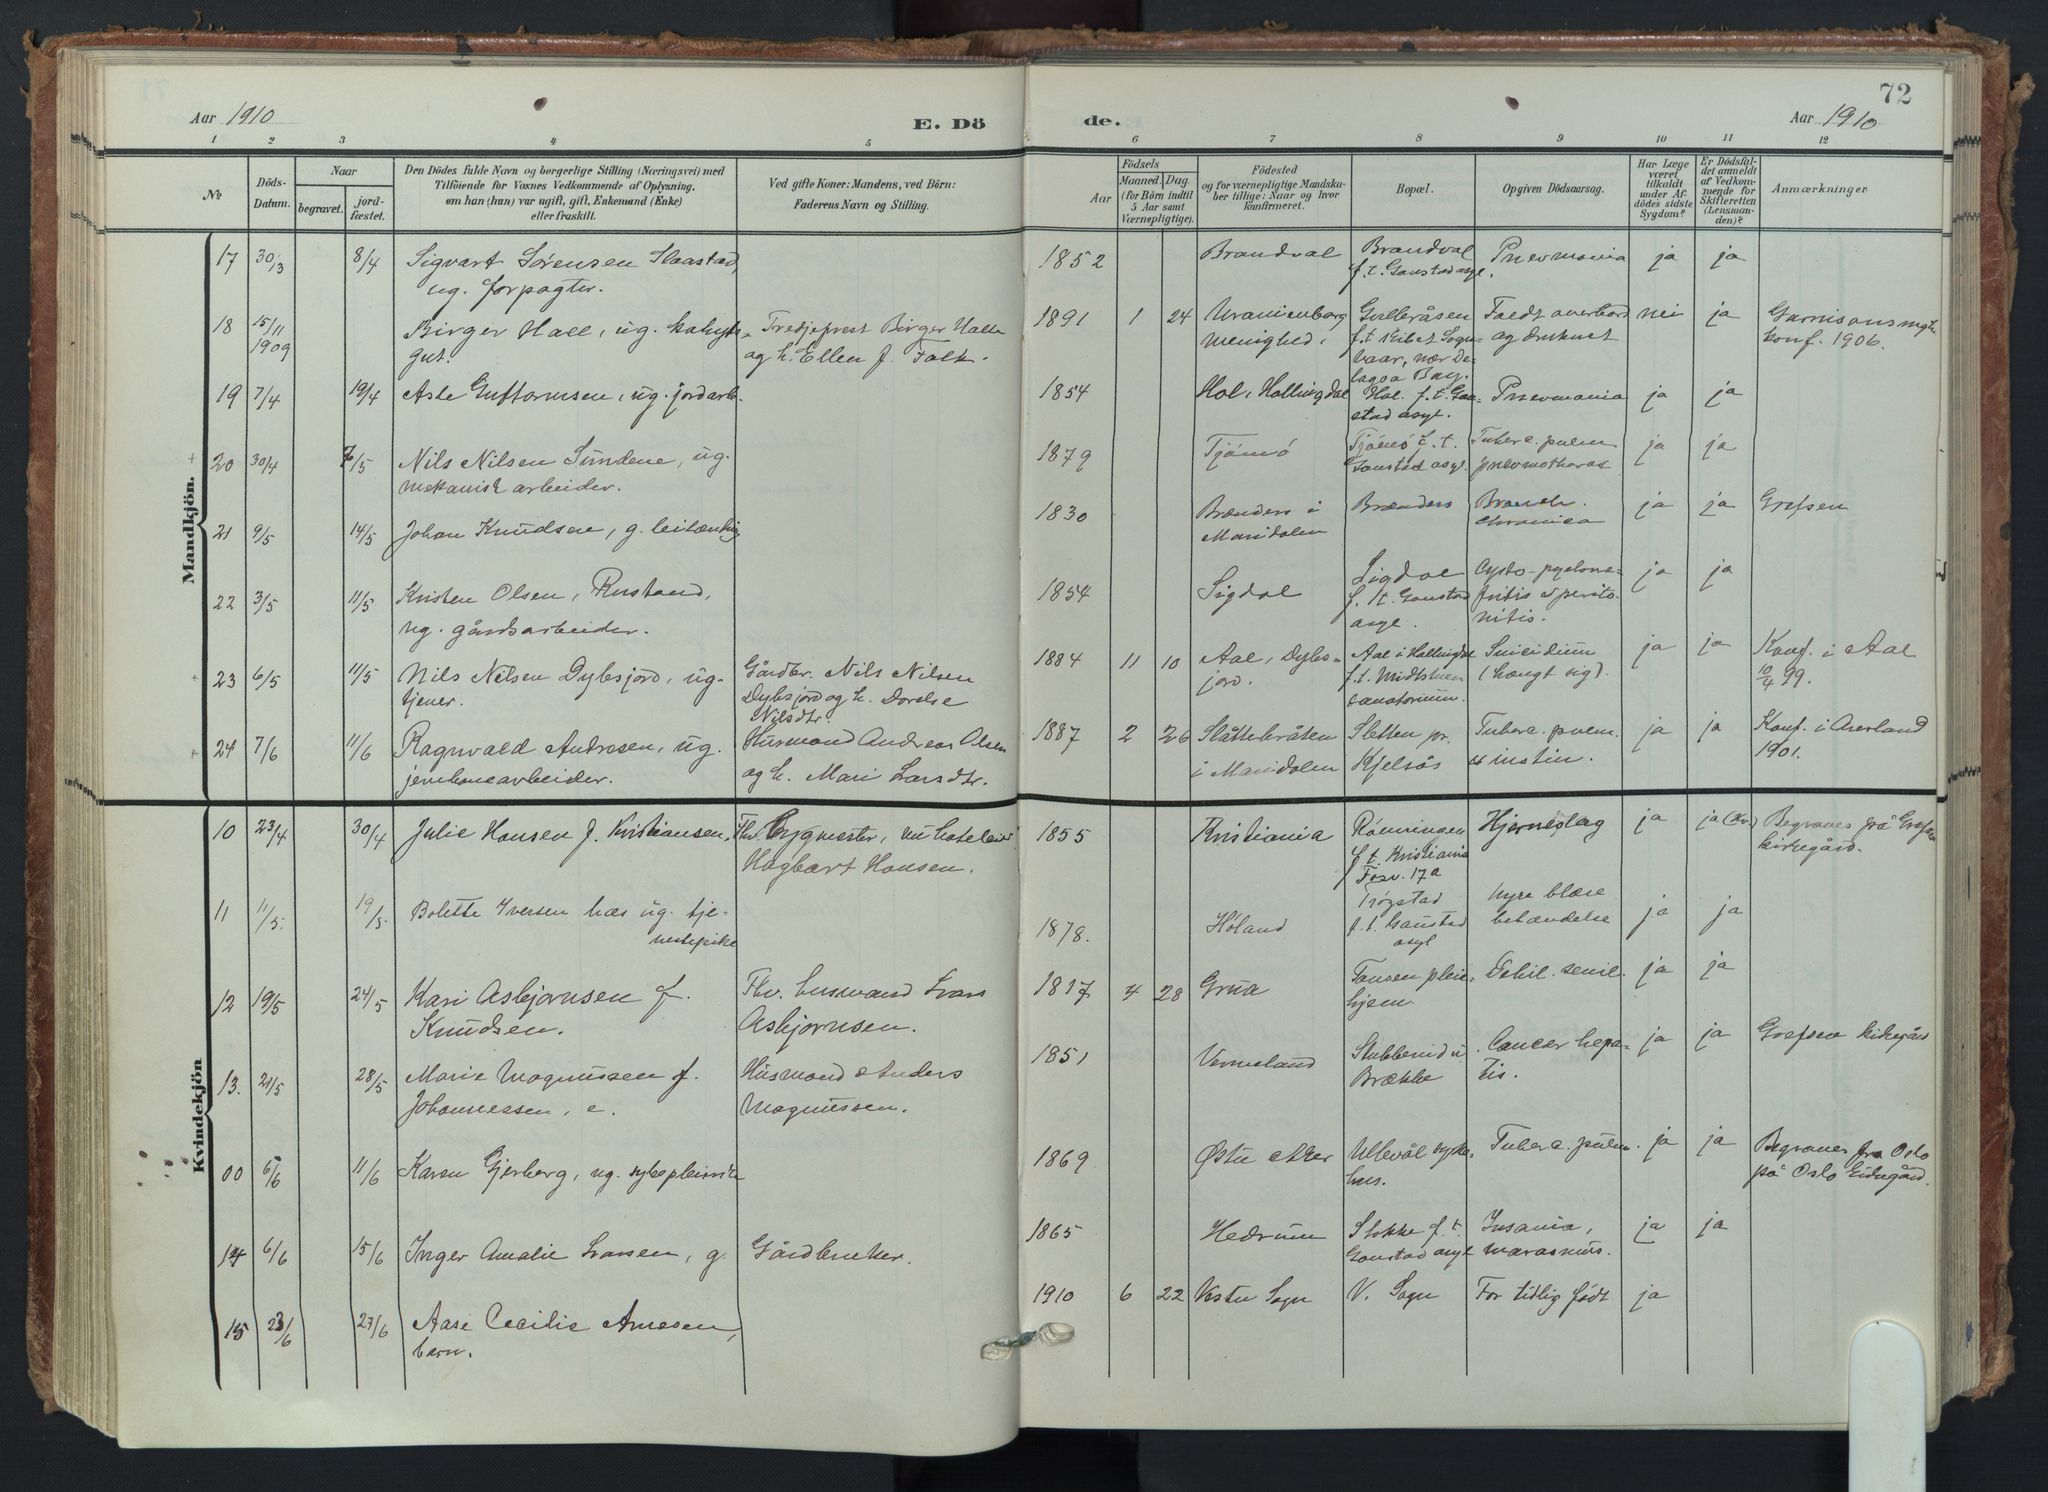 72
Aar 1910
E. Dö
de.
Aar 1910
1 2 3 4 5 6 7 8 9 10 11 12
No
Döds-
Datum.
Naar
begravet.
jord-
fæstet.
Den Dödes fulde Navn og borgerlige Stilling (Næringsvei) med
Tilföiende for Voxnes Vedkommende af Oplysning,
om han (hun) var ugift, gift, Enkemand (Enke)
eller fraskilt.
Ved gifte Koner: Mandens, ved Börn:
Faderens Navn og Stilling.
Födsels
Aar
Maaned. Dag
(for Börn indtil
5 Aar samt
Værnepligtige).
Födested
og for værnepligtige Mandska-
ber tillige: Naar og hvor
konfirmeret.
Bopæl.
Opgiven Dödsaarsag.
Har Læge
været
tilkaldt
under Af-
dödes sidste
Sygdom?
Er Dödsfal-
det anmeldt
af Vedkom-
mende for
Skifteretten
(Lensman-
den)?
Anmærkninger
Mandkjön.
17 30/3 8/4 Sigvart Sörensen Slaastad, 1852 Brandval Brandval Pnevmonia ja ja
ug. forpagter. f.t. Gaustad asyl.
18 15/11 Birger Hall, ug. Tredjeprest Birger Halle 1891 1 24 Uranienborg Faldt overbord nei ja
1909 gut. og h. Ellen f. Falk. menighed. og druknet konf. 1906.
nær De-
lagoa Bay.
19 7/4 19/4 Asle Guttormsen, ug. jordarb. 1854 Hol i Hallingdal Hol f.t. Gau- Pnevmonia ja ja
stad asyl.
20 30/4 7/5 Nils Nilsen Sundene, ug. 1879 Tjömö Tjömö f.t. Tuberc. pulm ja ja
mekanisk arbeider. Gaustad asyl.
21 9/5 14/5 Johan Knudsen, g. 1830 Brænders i Brænders Bronch. ja ja Grefsen
Maridalen chronica
22 3/5 11/5 Kristen Olsen, Rustand, 1854 Sigdal Sigdal Cysto-pyelone- ja ja
ug. gårdsarbeider. f.t. Gaustad fritis & perito-
asyl. nitis.
23 6/5 11/5 Nils Nilsen Dybsjord, ug. Gårdbr. Nils Nilsen 1884 11 10 Aal, Dybs- Aal i Hallingdal Suicidium ja ja Konf. i Aal
tjener. Dybsjord og h. Dorelse jord. f.t. Midtstuen (hængt sig). 10/4 99.
Nilsdtr. sanatorium.
24 7/6 11/6 Ragnvald Andresen, ug. Husmand Andreas Olsen 1887 2 26 Slåttebråten Sletten pr. Tuberc. pulm. ja ja Konf. i
jernbanearbeider. og h. Mari Larsdtr. i Maridalen Kjelsås & instin. 1901.
Kvindekjön
10 23/4 30/4 Julie Hansen f. Kristiansen. Fhv. bygmester, nu hoteleier 1855 Kristiania Hjerneslag ja ja Begraves på Grefsen
Hagbart Hansen. f.t. Kristiania kirkegård.
17a
11 11/5. 19/5. Bolette Iversen ug. tje- 1878. Höland Trögstad Nyre blære ja ja
nestepike f.t. Gaustad betændelse
asyl
12 19/5 24/5 Kari Asbjörnsen f. Fhv. husmand Lars 1817 4 28 Grua Tonsen pleie- Debil. senil. ja ja
Knudsen. Asbjornsen. hjem.
13. 21/5 28/5 Marie Magnussen f. Husmand Anders 1851 Vermeland Cancer hepa- ja ja Grefsen kirkegård
Johannessen, e. Magnussen. Brække tis.
00 5/6 11/6 Karen Gjerberg, ug. sykepleierske 1869 Östre Aker Ullevål syke- Tuberc. pulm. ja ja Begraves fra Oslo
hus. på Oslo kirkegård.
14 6/6 15/6 Inger Amalie Larsen, g. Gårdbruker. 1865 Hedrum Stokke f.t. Insania, ja ja
Gaustad asyl marasmus.
15 23/6 27/6 Aase Cecilie Arnesen, 1910 6 22 Vestre Sogn V. Sogn For tidlig födt ja
barn.